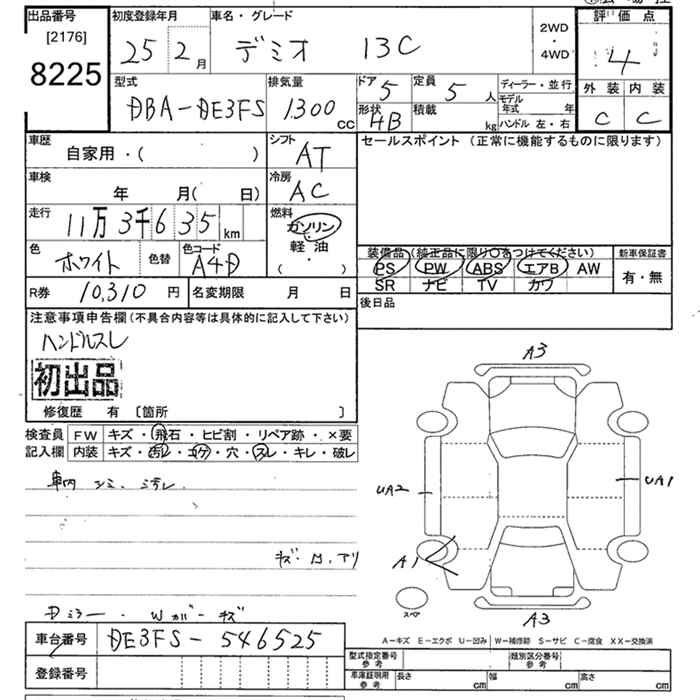 出品番号 初度登録年月 車名・グレード 評価点
[2176] 25 2月 デミオ 13C 2WD・4WD 4
8225
型式 排気量 ドア 5 定員 5人 ディーラー・並行 外装 内装
DBA-DE3FS 1300cc 形状 HB 積載 kg モデル年式 年 C C
ハンドル 左・右
車歴 シフト セールスポイント (正常に機能するものに限ります)
自家用・( ) AT
車検 冷房
年 月( 日) AC
走行 燃料
11万3千635km ガソリン・軽油
( ・ )
色 ホワイト 色替 色コード A4D
装備品 (純正品に限り○をつけてください) 新車保証書
PS PW ABS エアB AW 有・無
SR ナビ TV カワ
R券 10,310円 名変期限 月 日 後日品
注意事項申告欄(不具合内容等は具体的に記入して下さい)
ハンドルスレ
初出品
修復歴 有 〔箇所 〕
検査員 FW キズ・飛石・ヒビ割・リペア跡・×要
記入欄 内装 キズ・汚レ・コゲ・穴・スレ・キレ・破レ
車内
A3
UA2 UA1
A1
スペア
A3
Dミラー・Wカバーキズ
A-キズ E-エクボ U-凹み W-補修跡 S-サビ C-腐食 XX-交換済
車台番号 DE3FS-546525
型式指定番号 参考 類別区分番号 参考
登録番号
車庫証明用 参考 長さ cm 幅 cm 高さ cm